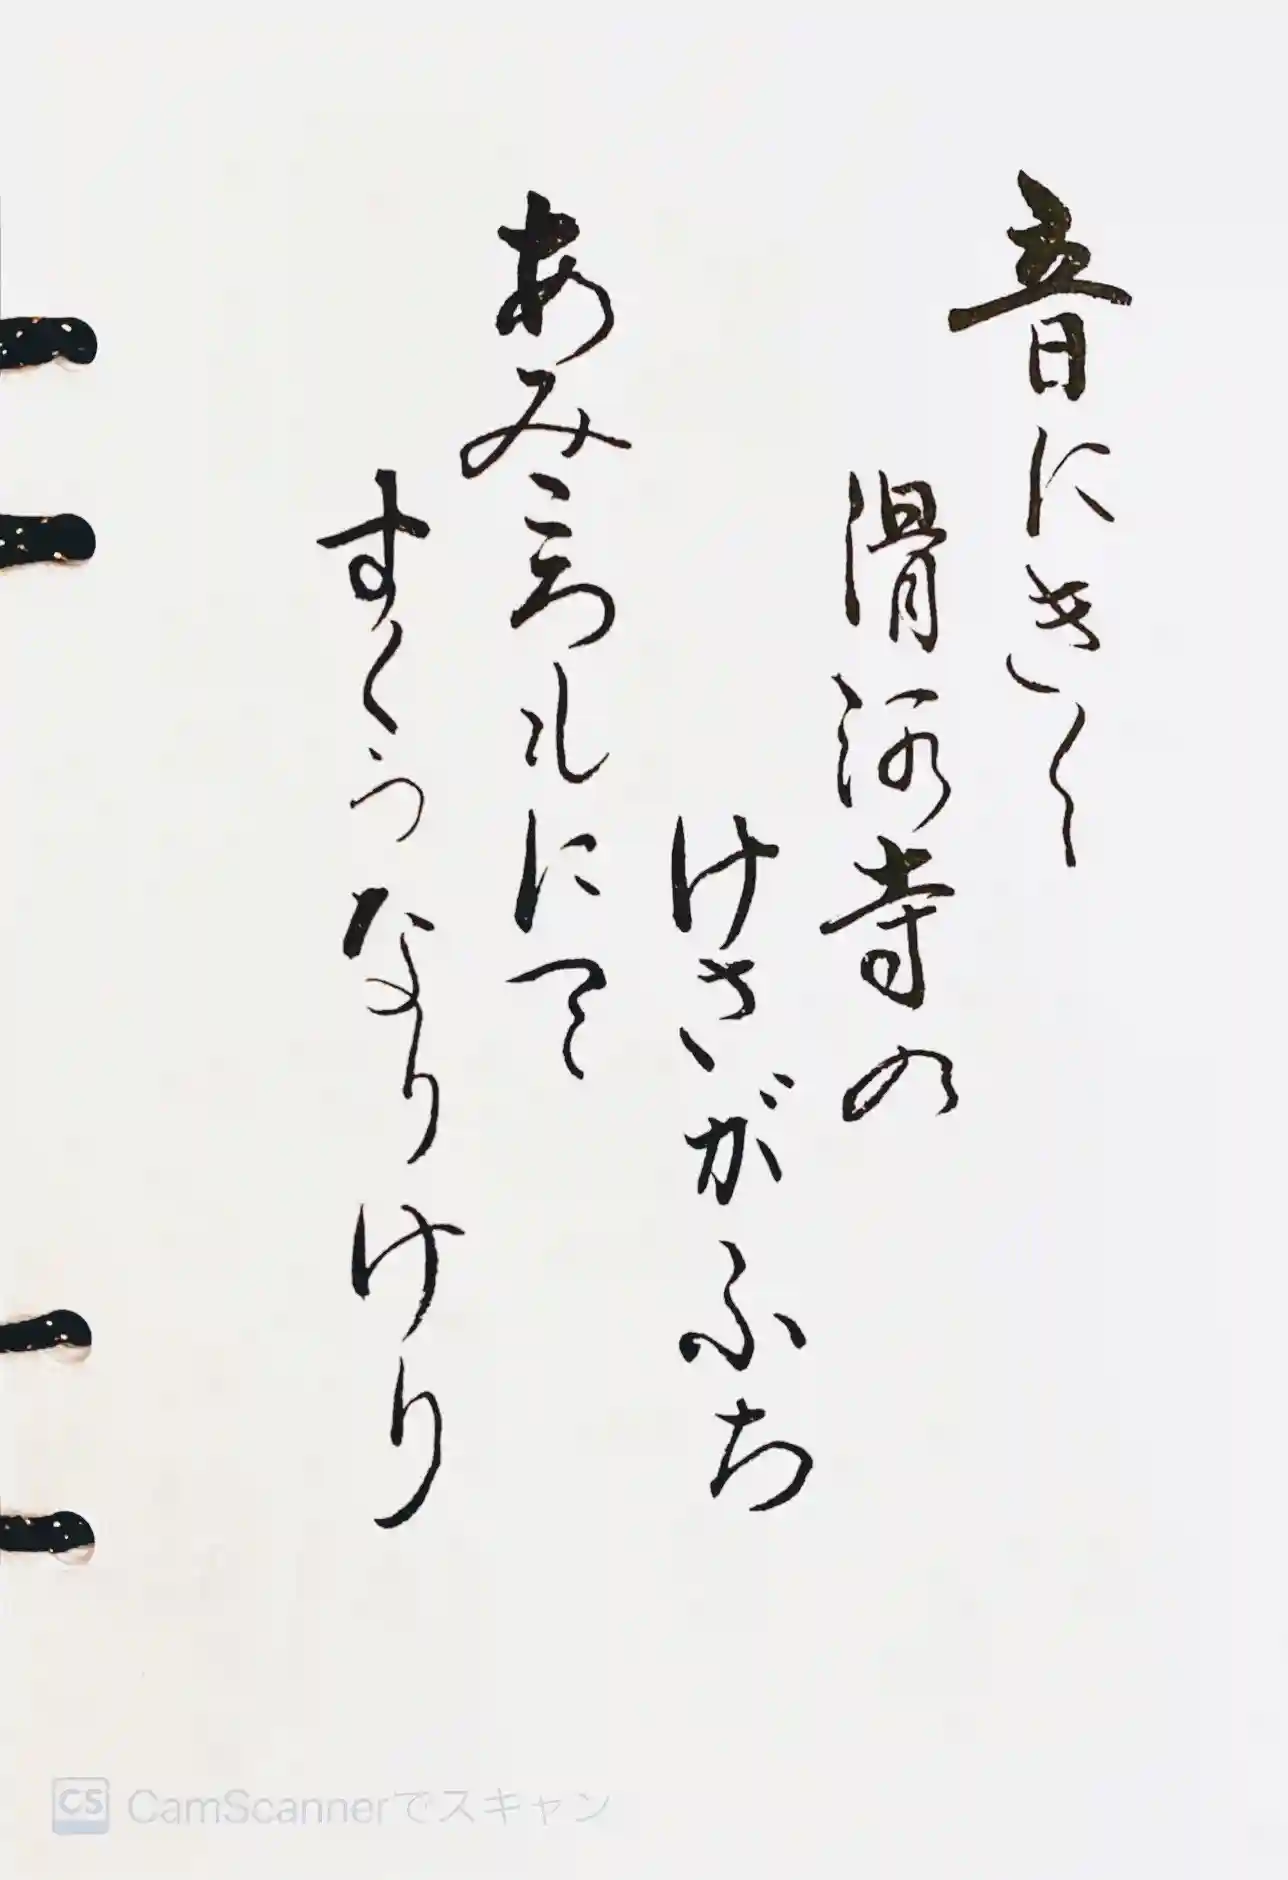 音にきく
滑河寺の
けさがふち
あみころもにて
すくうなりけり
CS CamScannerでスキャン